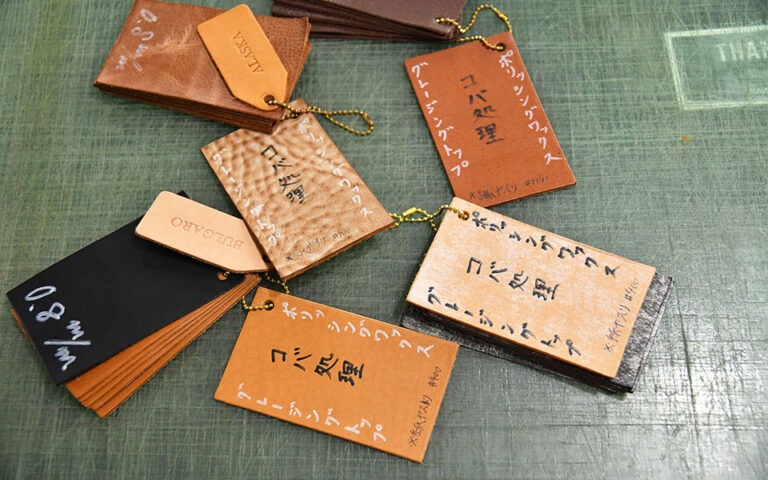 0.8 m/m
ALASKA
ポリッシングワックス
コバ処理
グレージングトップ
※紙ヤスリ #400
THA
ポリッシングワックス
コバ処理
グレージングトップ
※紙ヤスリ
BULGARO
0.8 m/m
ポリッシングワックス
コバ処理
グレージングトップ
※紙ヤスリ #400
ポリッシングワックス
コバ処理
グレージングトップ
※紙ヤスリ #400